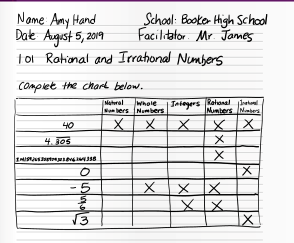 Name Amy Hand School: Booker High School
Date August 5, 2019 Facilitator: Mr. James
101 Rational and Irrational Numbers
Complete the chart below.
Natural Numbers Whole Numbers Integers Rational Numbers Irrational Numbers
40 X X X X X
4.305 X
X
0 X
-5 X X X
5/6 X X
√3 X